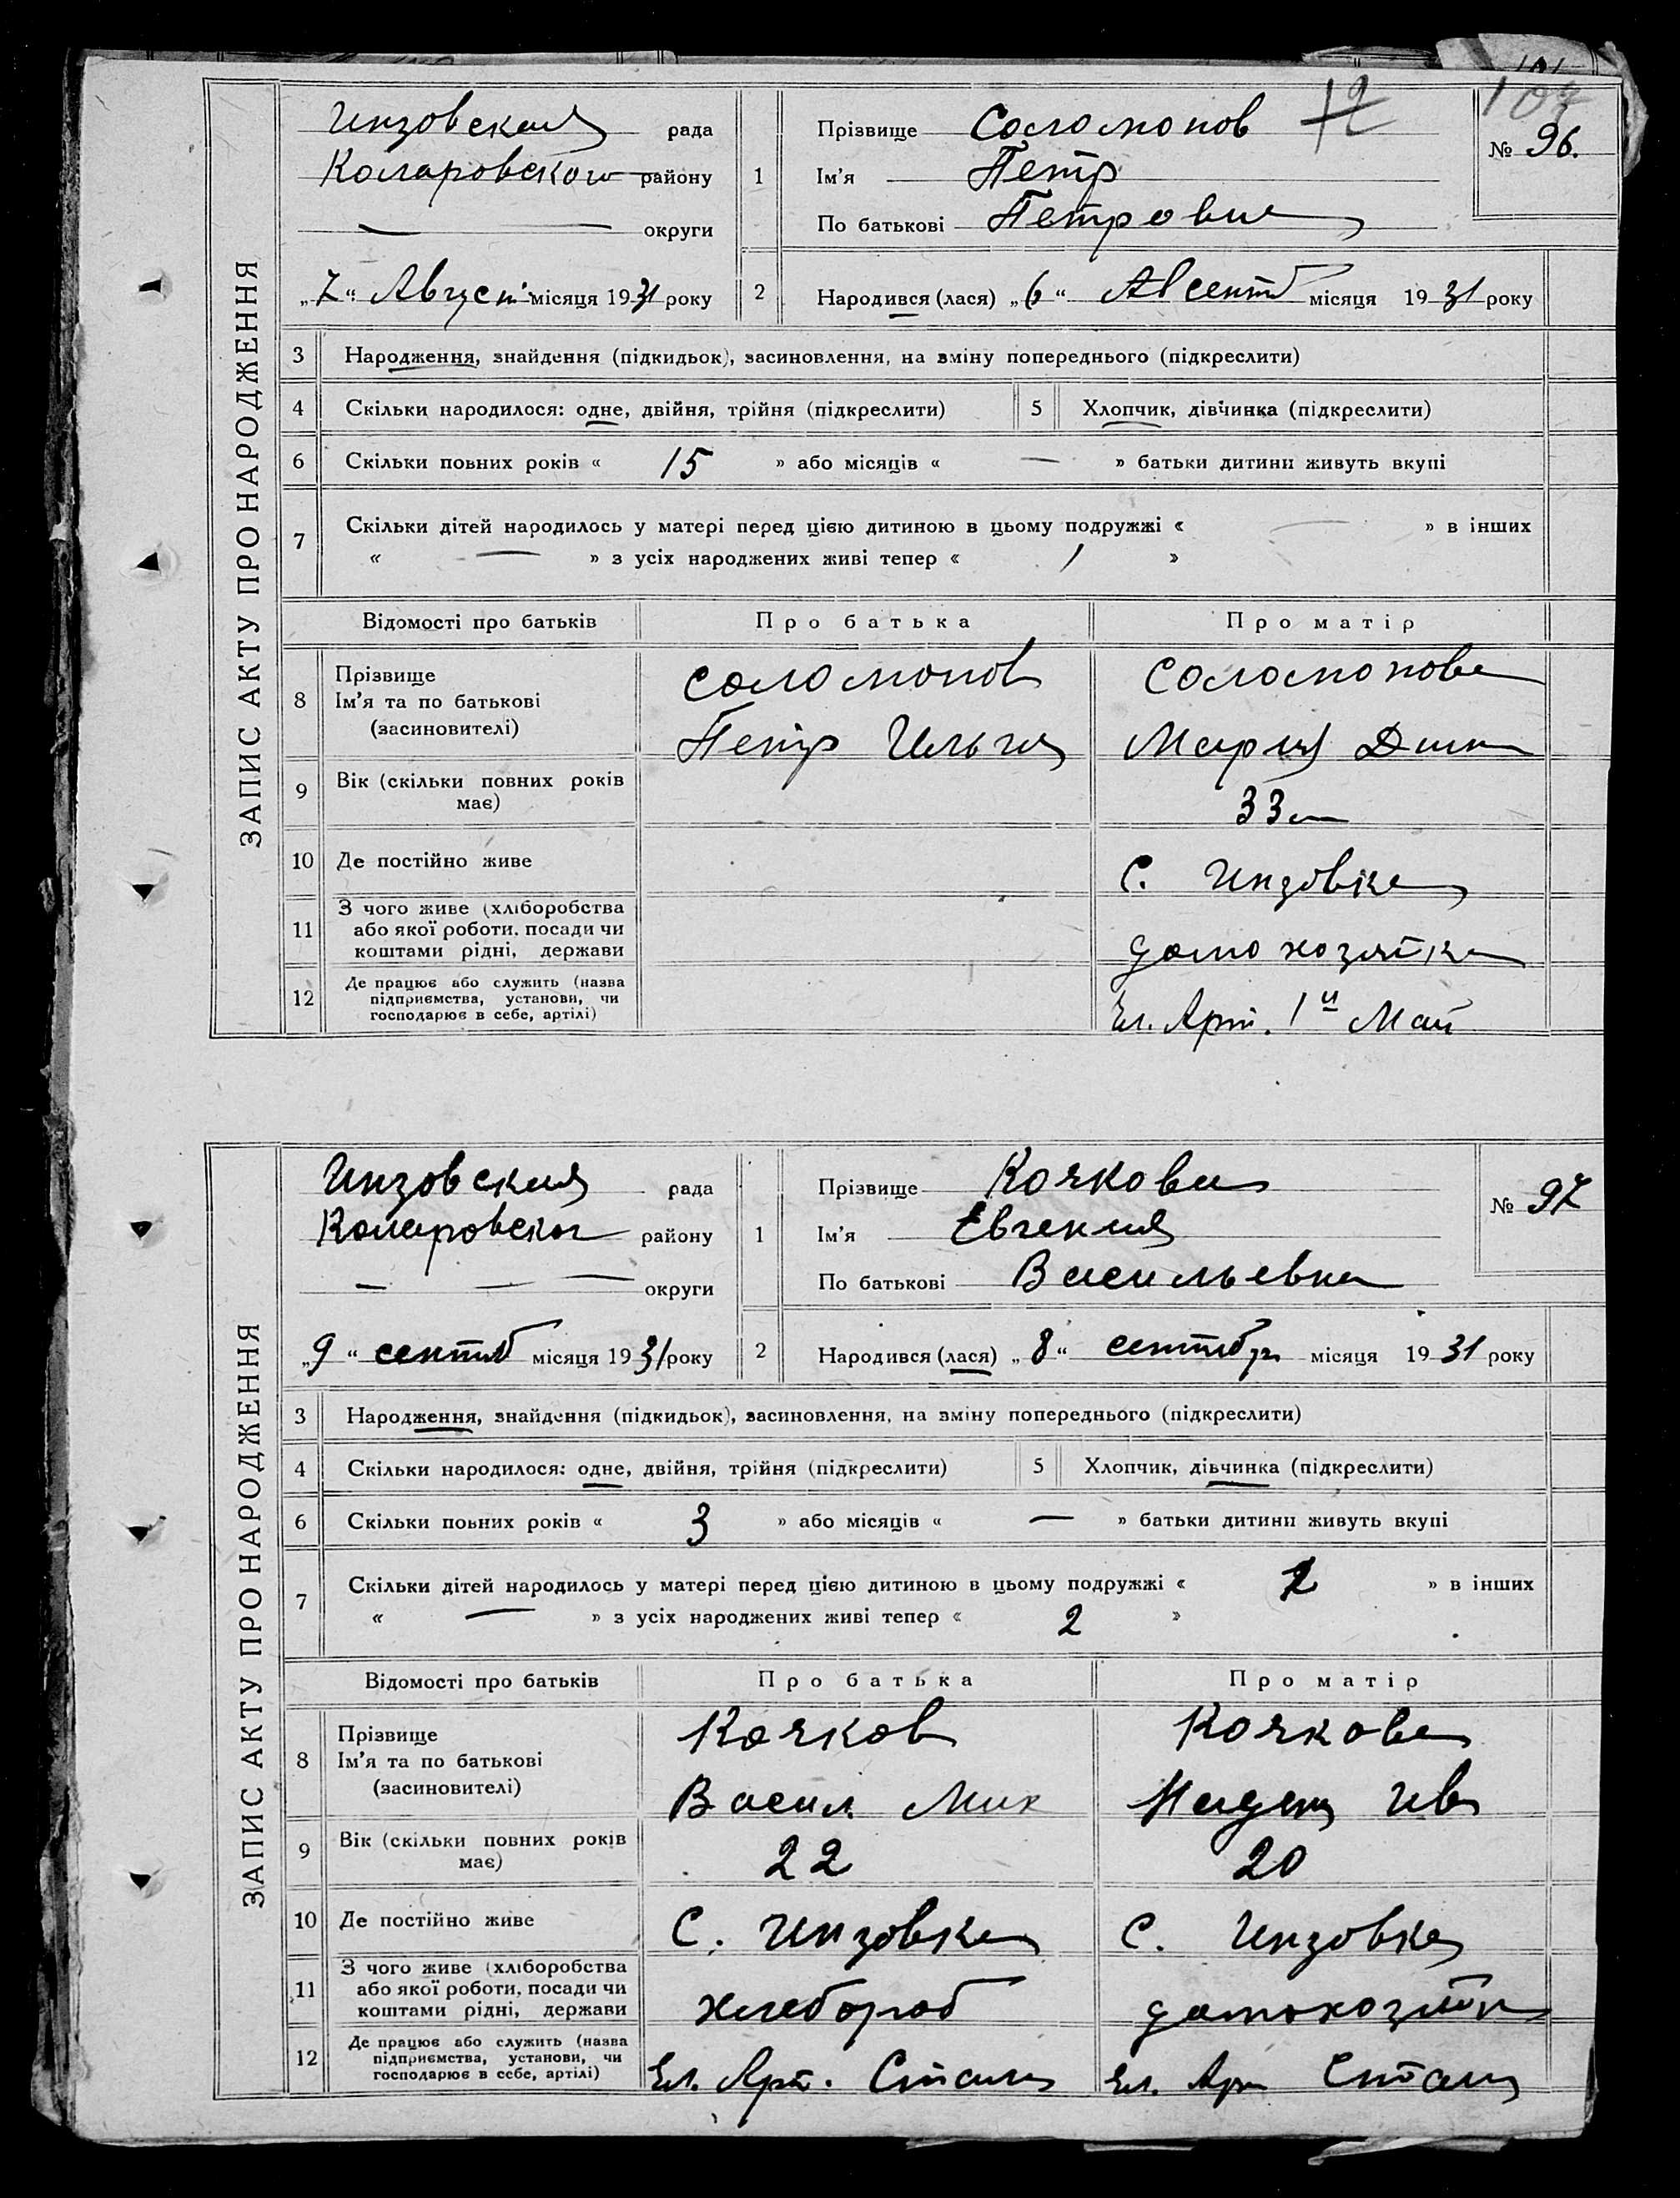 ЗАПИС АКТУ ПРО НАРОДЖЕННЯ
107
12
№ 96.
Инзовская рада
Коларовского району
— округи
„7“ Август місяця 1931 року
1 Прізвище Соломонов
Ім'я Петр
По батькові Петрович
2 Народився (лася) „6“ місяця 1931 року
3 Народження, знайдення (підкидьок), засиновлення, на зміну попереднього (підкреслити)
4 Скільки народилося: одне, двійня, трійня (підкреслити) 5 Хлопчик, дівчинка (підкреслити)
6 Скільки повних років « 15 » або місяців « — » батьки дитини живуть вкупі
7 Скільки дітей народилось у матері перед цією дитиною в цьому подружжі « — » в інших
« — » з усіх народжених живі тепер « 1 »
Відомості про батьків Про батька Про матір
8 Прізвище Соломонов Соломонова
Ім'я та по батькові
(засиновителі) Петр Ильич Мария
9 Вік (скільки повних років
має) 33
10 Де постійно живе С. Инзовка
11 З чого живе (хліборобства
або якої роботи, посади чи
коштами рідні, держави домохозяйка
12 Де працює або служить (назва
підприємства, установи, чи
господарює в себе, артілі) Арт. 1й Май
ЗАПИС АКТУ ПРО НАРОДЖЕННЯ
№ 97
Инзовская рада
Коларовског району
— округи
„9“ сентяб місяця 1931 року
1 Прізвище Кочкова
Ім'я Евгения
По батькові Васильевна
2 Народився (лася) „8“ сентября місяця 1931 року
3 Народження, знайдення (підкидьок), засиновлення, на зміну попереднього (підкреслити)
4 Скільки народилося: одне, двійня, трійня (підкреслити) 5 Хлопчик, дівчинка (підкреслити)
6 Скільки повних років « 3 » або місяців « — » батьки дитини живуть вкупі
7 Скільки дітей народилось у матері перед цією дитиною в цьому подружжі « » в інших
« — » з усіх народжених живі тепер « 2 »
Відомості про батьків Про батька Про матір
8 Прізвище Кочков Кочкова
Ім'я та по батькові
(засиновителі) Васил Мих Надеж Ив
9 Вік (скільки повних років
має) 22 20
10 Де постійно живе С. Инзовка С. Инзовка
11 З чого живе (хліборобства
або якої роботи, посади чи
коштами рідні, держави хлебороб домохозяйк
12 Де працює або служить (назва
підприємства, установи, чи
господарює в себе, артілі) Арт. Сталин Арт Сталин